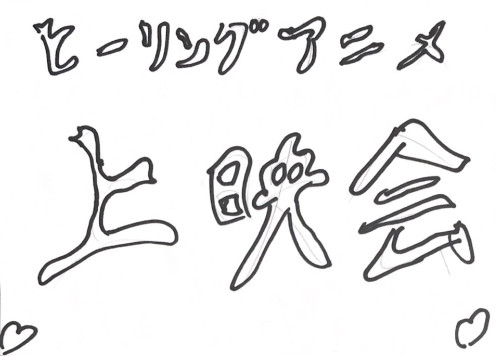 ヒーリングアニメ
上映会